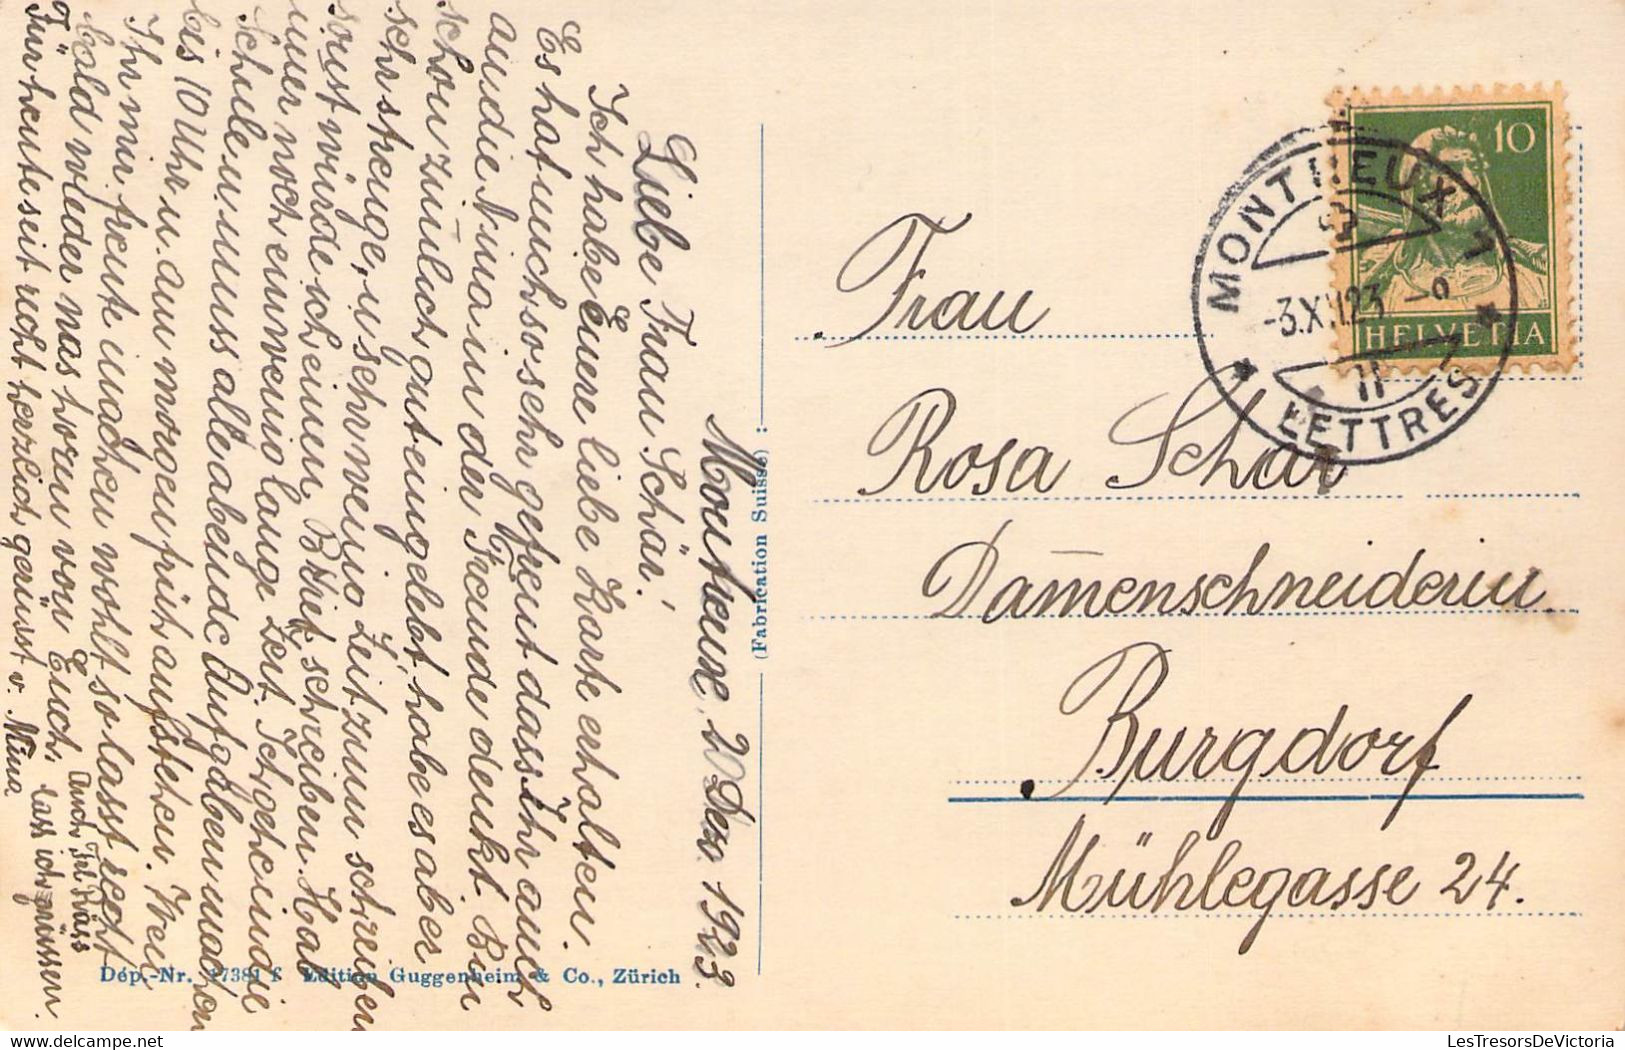 Montreux, 2 Dez. 1923.
Liebe Frau Schär!
Ich habe Euere liebe Karte erhalten.
Es hat mich so sehr gefreut dass Ihr auch
an die Nina in der Fremde denkt. Bin
schon zimlich gut eingelebt, habe es aber
sehr strenge, u sehr wenig Zeit zum schreiben
sonst würde ich einen Brief schreiben. Hab
imer noch ein wenig lange Zeit. Ich gehe in die
Schule u. muss alle abende Aufgaben machen
bis 10 Uhr u. am morgen früh aufstehen. Weil
Ihr mir freut machen wohlt so lasst recht
bald wieder was hören von Euch.
Für heute seit recht herzlich gerüsst v. Nina
Auch
lass ich grüssen.
(Fabrication Suisse)
Dép.-Nr. 17381 f Edition Guggenheim & Co., Zürich
10
HELVETIA
MONTREUX 1
-3.XII.23 -9
II
LETTRES
Frau
Rosa Schär
Damenschneiderin
Burgdorf
Mühlegasse 24.
LesTresorsDeVictoria